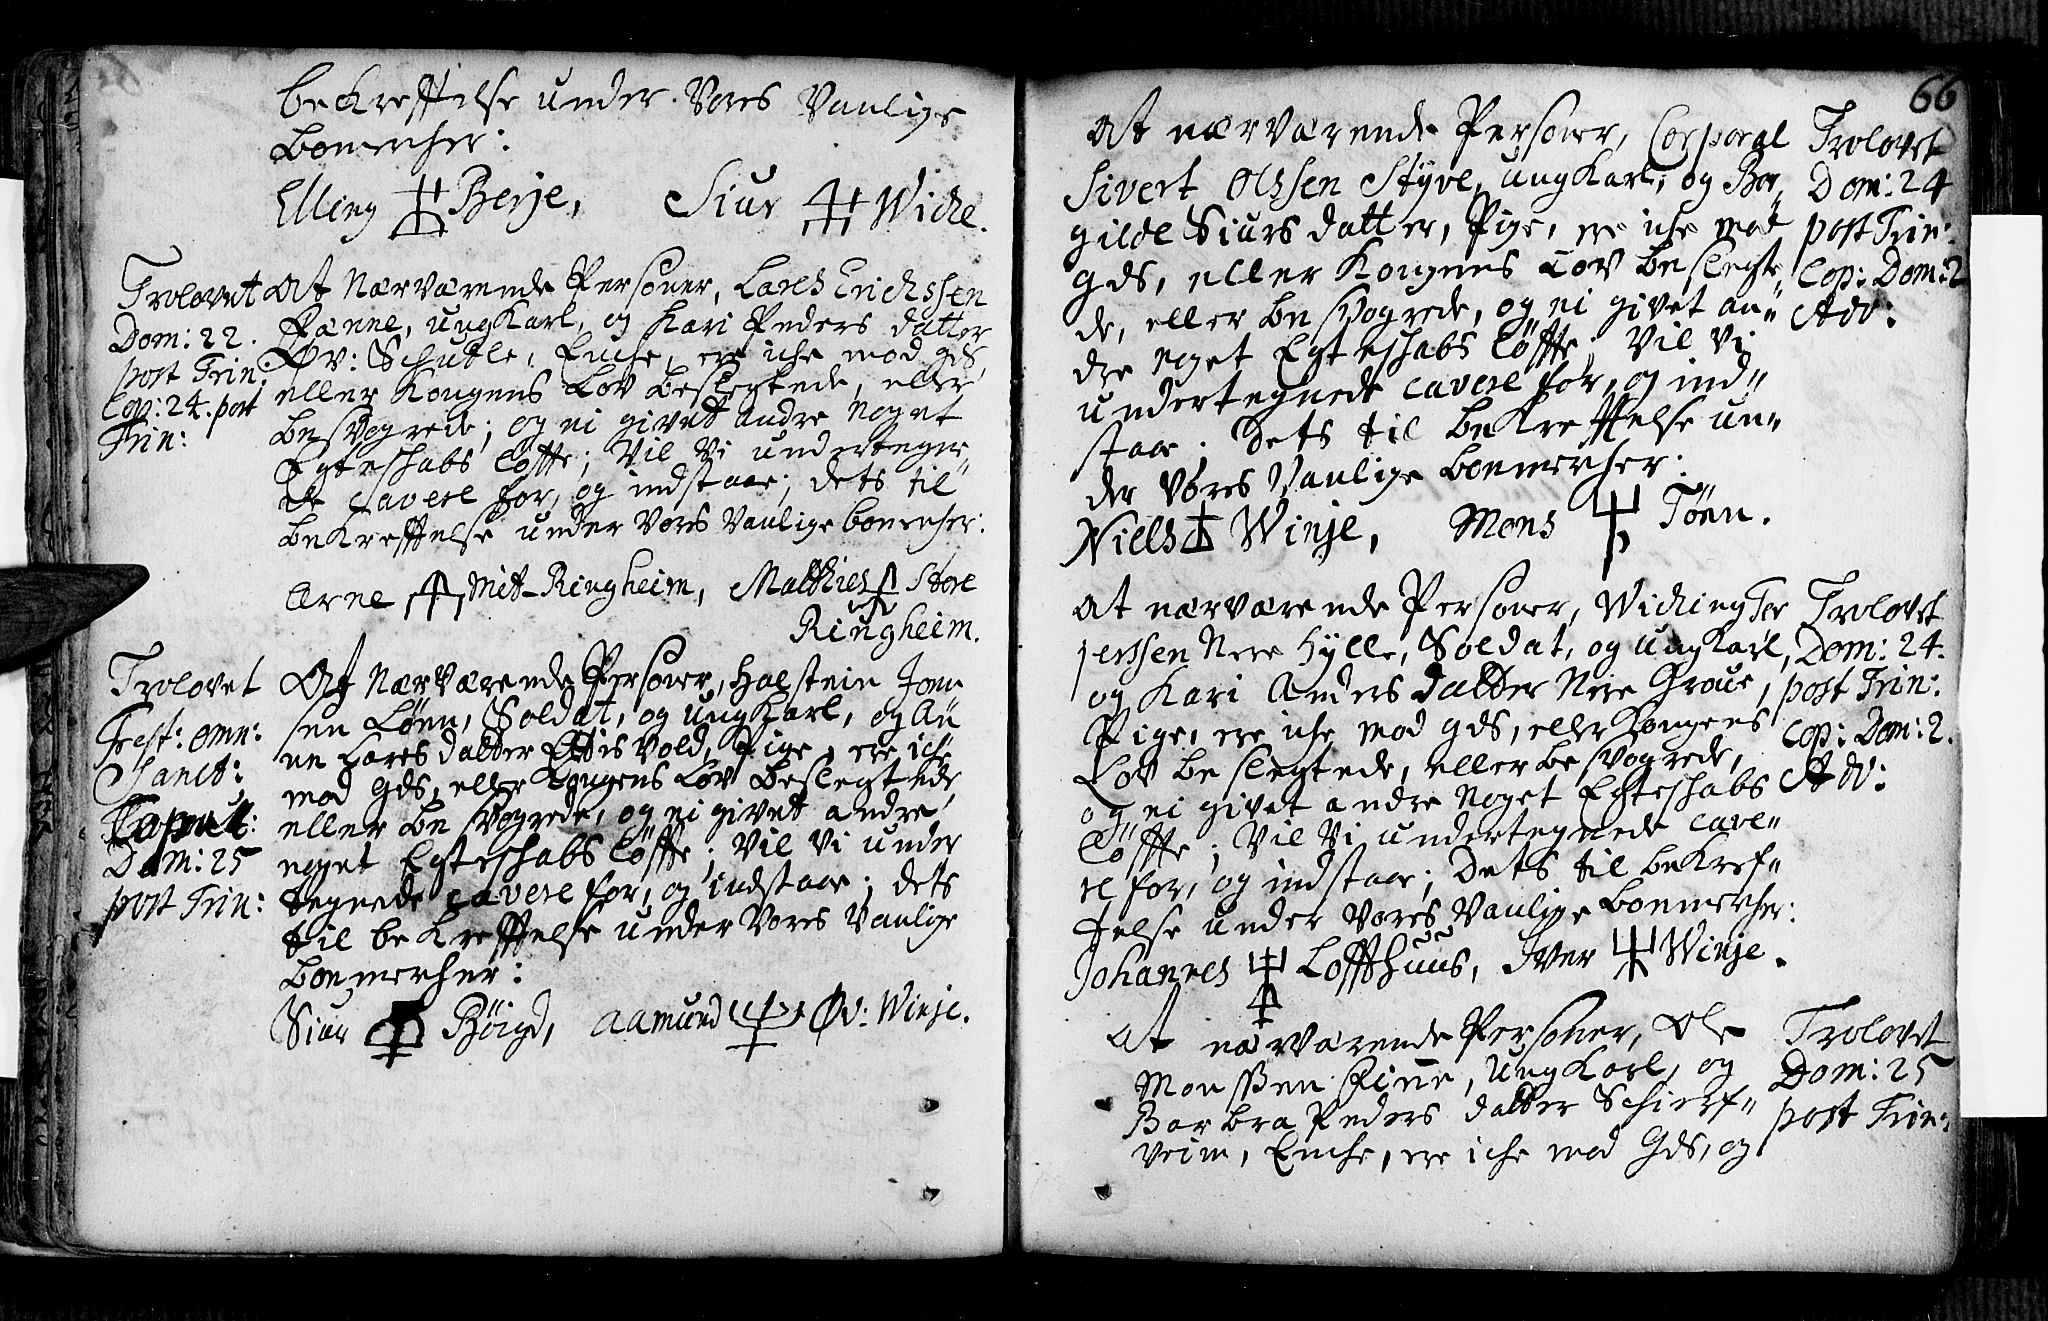 bekrefftelse under Vores Vanlige
bomercher:
Elling Berje, Siur Wichl.
Trolovet
Dom: 22.
post Trin:
Cop: 24. post
Trin:
At Nærværende Personer, Lares Erichssen
Fænne, ungKarl, og Kari Peders datter
Øv: Schutle, Enche, ere iche mod gds,
eller Kongens Lov beslegtede, eller
besvogrede; og ei givet andre noget
Egteschabs Løffte; Vil Vi undertegne
de Cavere for, og indstaae; dets til
bekrefftelse under Vores Vanlige bomercher:
Arne Mit-Ringheim, Matthies Store
Ringheim.
Trolovet
Fest: omn:
Sanct:
Copul:
Dom: 25
post Trin:
At Nærværende Personer, Halstein Joen
sen Løen, Soldat, og ungKarl, og An
ne Lares datter Ettis Vold, Pige, ere iche
mod gds, eller Kongens Lov beslegtede
eller besvogrede, og ei givet andre
noget Egteschabs Løffte; Vil Vi under
tegnede cavere for, og indstaae; dets
til bekrefftelse under Vores Vanlige
bomercher:
Siur Bøigd, Aamund Øv: Winje.
66
At nærværende Personer, Corporal
Sivert Olssen Styve, ungKarl, og Bor
gilde Siurs datter, Pige, ere iche mod
gds, eller Kongens Lov beslegte
de, eller besvogrede, og ei givet an
dre noget Egteschabs Løffte; Vil Vi
undertegnede cavere for, og ind
staae; dets til bekrefftelse un
der Vores Vanlige bomercher:
Niels Winje, Mons Tøen.
Trolovet
Dom: 24
post Trin:
Cop: Dom: 2
Adv:
At nærværende Personer, Wiching Tor
jerssen Nere Hylle, Soldat, og ungKarl,
og Kari Anders datter Nere Groue,
Pige, ere iche mod gds, eller Kongens
Lov beslegtede, eller besvogrede,
og ei givet andre noget Egteschabs
Løffte; Vil Vi undertegnede cave
re for, og indstaae; Dets til bekref
telse under Vores Vanlige bomercher:
Johannes Loffthuus, Iver Winje.
Trolovet
Dom: 24.
post Trin:
Cop: Dom: 2.
Adv:
At nærværende Personer, Ole
Monssen Finne, UngKarl, og
Barbra Peders datter Schierf
veim, Enche, ere iche mod Gds, og
Trolovet
Dom: 25
post Trin: